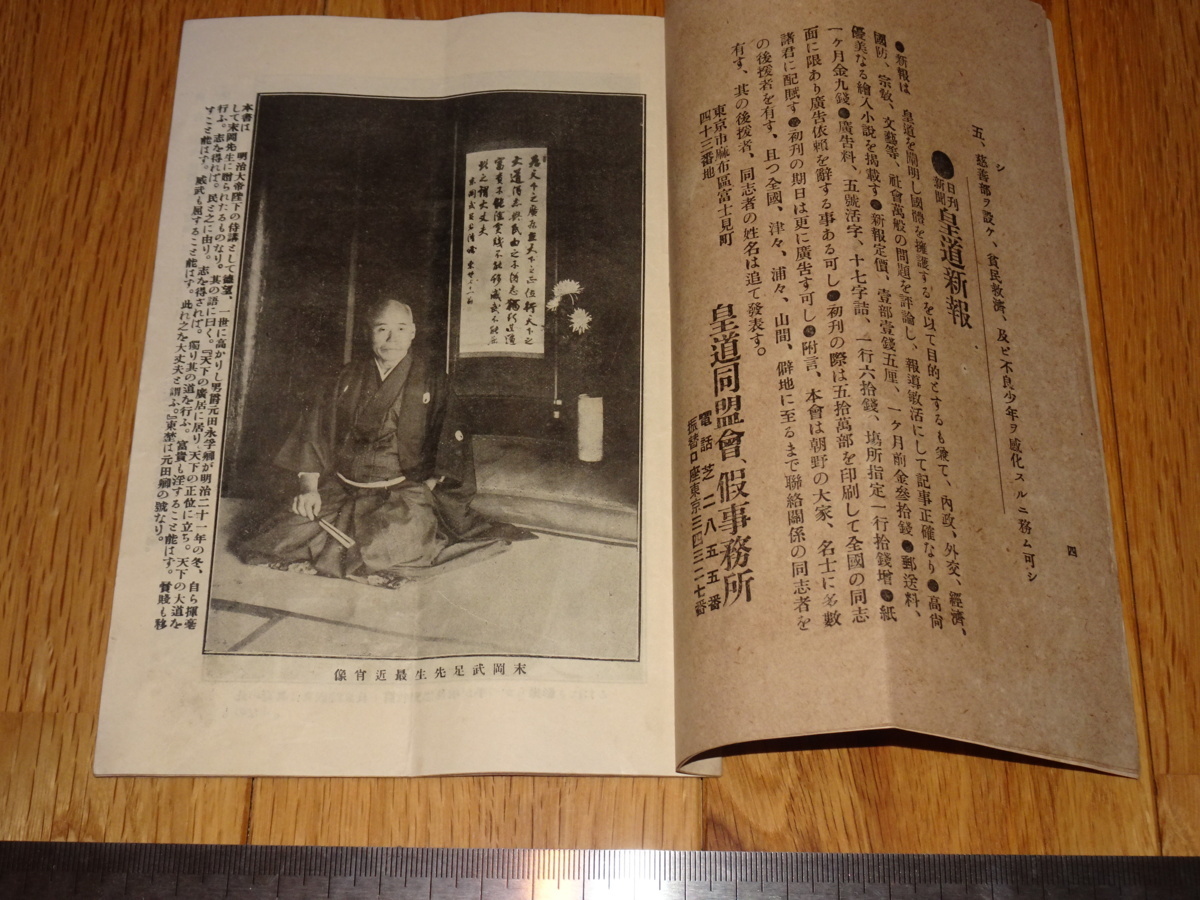 四
シ
五、慈善部ヲ設ケ、貧民救濟、及ビ不良少年ヲ感化スルニ務ム可シ
●日刊新聞皇道新報
●新報は　皇道を闡明し國體を擁護するを以て目的とするも兼て、內政、外交、經濟、
國防、宗敎、文藝等、社會萬般の問題を評論し、報導敏活にして記事正確なり●高尙
優美なる繪入小說を揭載す●新報定價、壹部壹錢五厘、一ヶ月前金參拾錢●郵送料、
一ヶ月金九錢●廣告料、五號活字、十七字詰、一行六拾錢、塲所指定一行拾錢增●紙
面に限あり廣告依賴を辭する事ある可し●初刊の際は五拾萬部を印刷して全國の同志
諸君に配賦す●初刊の期日は更に廣告す可し●附言、本會は朝野の大家、名士に多數
の後援者を有す、且つ全國、津々、浦々、山間、僻地に至るまで聯絡關係の同志者を
有す、其の後援者、同志者の姓名は追て發表す。
東京市麻布區富士見町
四十三番地
皇道同盟會、假事務所
電話芝二八五五番
振替口座東京三四三二七番
居天下之廣居立天下之正位行天下之
大道得志與民由之不得志獨行其道
富貴不能淫貧賤不能移威武不能屈
此之謂大丈夫
末岡武足先生最近肖像
本書は　明治大帝陛下の侍講として德望、一世に高かりし男爵元田永孚翁が明治二十一年の冬、自ら揮毫
して末岡先生に贈られたるものなり。其の語に曰く。『天下の廣居に居り、天下の正位に立ち。天下の大道を
行ふ。志を得れば。民と之に由り。志を得されば。獨り其の道を行ふ。富貴も淫すること能はず。貧賤も移
すこと能はす。威武も屈すること能はす。此れ之を大丈夫と謂ふ。』東埜は元田翁の號なり。